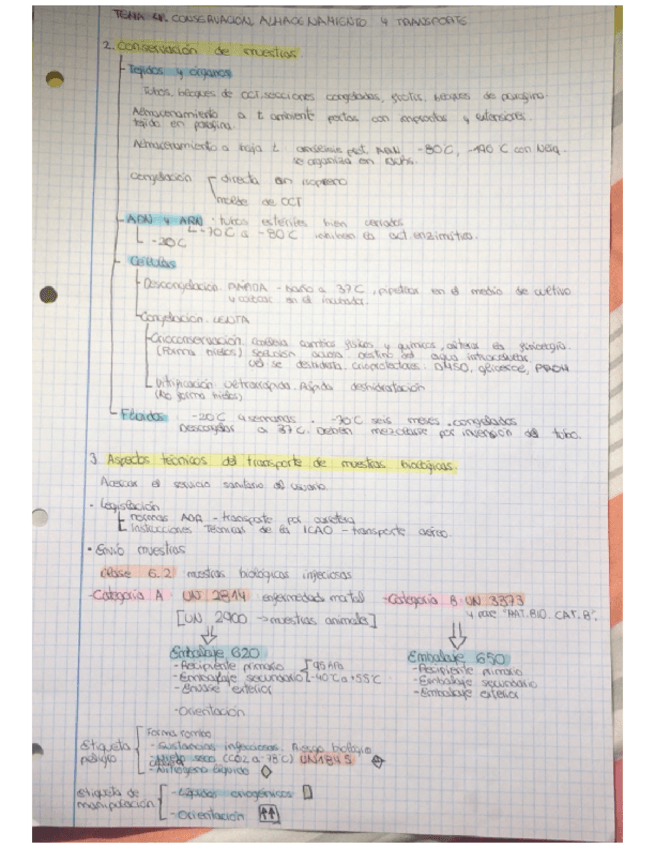 TEMA 4. CONSERVACIÓN, ALMACENAMIENTO Y TRANSPORTE
2. Conservación de muestras
Tejidos y órganos
Tubos, bloques de OCT, secciones congeladas, portas, bloques de parafina.
Almacenamiento a t ambiente portas con improntas y extensiones.
tejido en parafina.
Almacenamiento a baja t -80C, -190 C con N2liq.
se organiza en racks.
Congelación directa en isopreno
molde de OCT
ADN y ARN · tubos estériles bien cerrados
-70C a -80C inhiben la act. enzimática.
-20C
Células
Descongelación RÁPIDA - baño a 37C, pipetear en el medio de cultivo
y colocar en el incubador.
Congelación LENTA
Crioconservación. conlleva cambios físicos y químicos,
(Forma hielos) solución acuosa. destino del agua intracelular
cel se deshidrata. crioprotectores. DMSO, glicerol, PROH
Vitrificación ultrarrápida. Rápida deshidratación
(No forma hielos)
Fluidos -20C 4 semanas. -30C seis meses. congelados
Descongelar a 37C. Deben mezclarse por inversión del tubo.
3 Aspectos técnicos del transporte de muestras biológicas.
el servicio sanitario del usuario.
· Legislación
normas ADR - transporte por carretera
Instrucciones Técnicas de la ICAO - transporte aéreo.
· Envío muestras
clase 6.2 muestras biológicas infecciosas
- Categoría A UN 2814 enfermedad mortal - Categoría B: UN 3373
[UN 2900 → muestras animales] y pone "MAT. BIO. CAT. B".
Embalaje 620 Embalaje 650
- Recipiente primario 95 kPa - Recipiente primario
- Embalaje secundario -40°C a +55°C - Embalaje secundario
- Envase exterior - Embalaje exterior
- Orientación
Etiqueta peligro
Forma rombo
- Sustancias infecciosas. Riesgo biológico
- Hielo seco (CO2 a -78C) UN1845
- Nitrógeno líquido
etiqueta de manipulación
- Líquidos criogénicos
- Orientación